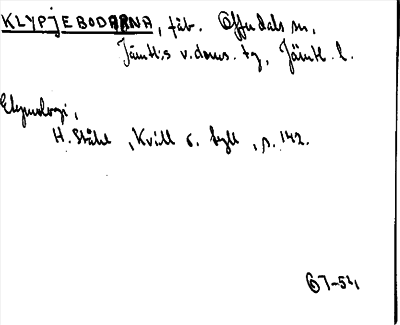 KLYPJEBODARNA, fäb. Offerdals sn,
Jämtl:s v.doms. tg, Jämtl. l.
Etymologi,
H. Ståhl, Kvill o. bylt, s. 142.
67-54